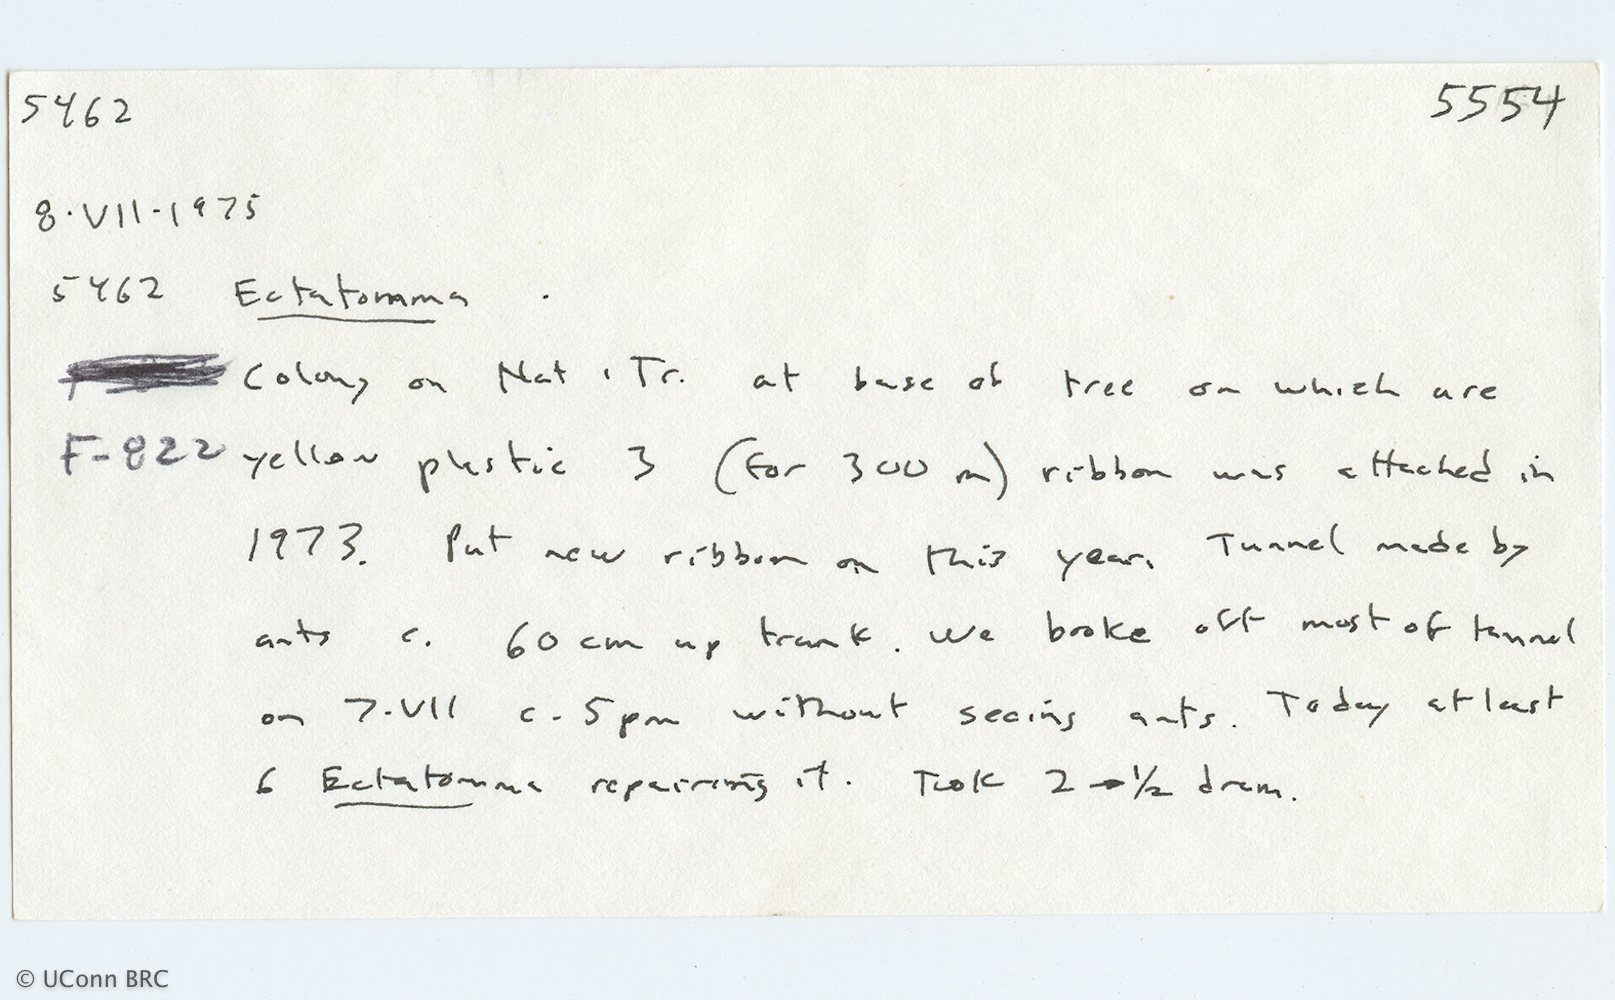 5462 5554
8·VII·1975
5462 Ectatomma .
Colony on Nat. Tr. at base of tree on which are
F-822 yellow plastic 3 (for 300 m) ribbon was attached in
1973. Put new ribbon on this year. Tunnel made by
ants c. 60 cm up trunk. We broke off most of tunnel
on 7·VII c. 5pm without seeing ants. Today at least
6 Ectatomma repairing it. Took 2 → 1/2 dram.
© UConn BRC